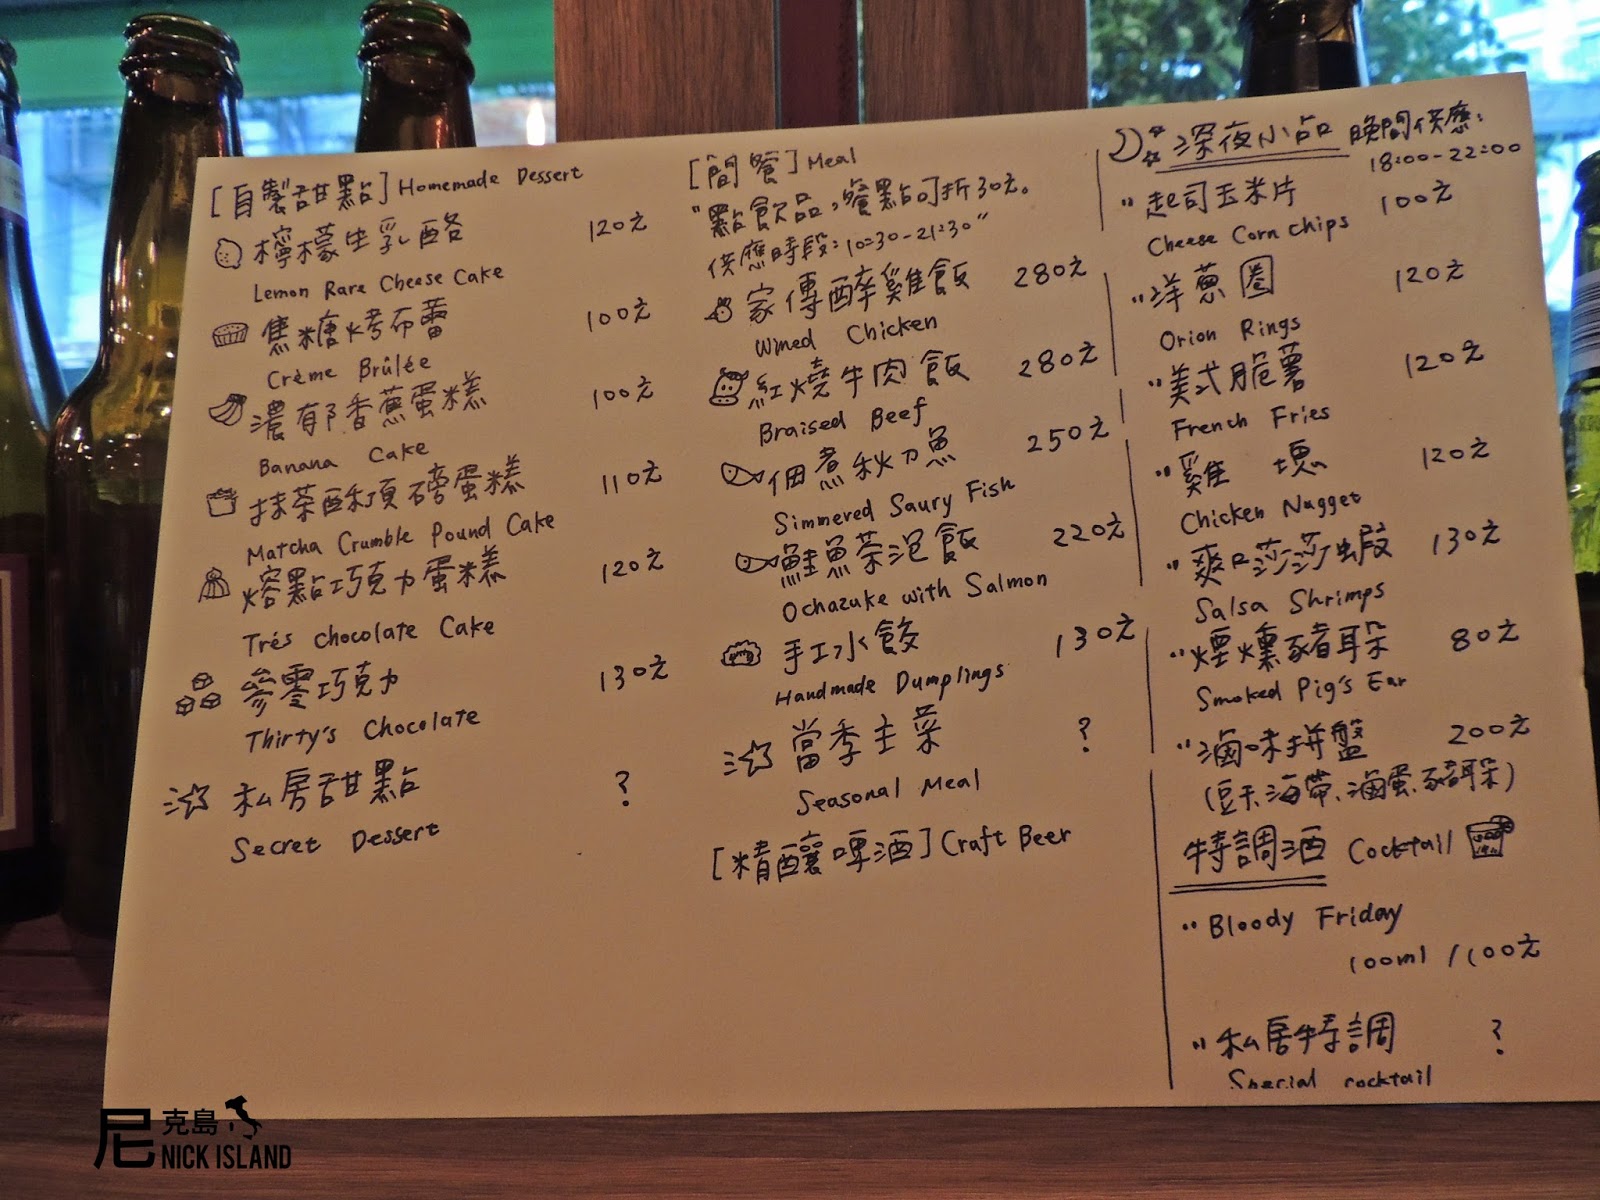 [自製甜點] Homemade Dessert
檸檬生乳酪 120元
Lemon Rare Cheese Cake
焦糖烤布蕾 100元
Crème Brûlée
濃郁香蕉蛋糕 100元
Banana Cake
抹茶酥頂磅蛋糕 110元
Matcha Crumble Pound Cake
熔點巧克力蛋糕 120元
Trés chocolate Cake
參零巧克力 130元
Thirty's Chocolate
私房甜點 ?
Secret Dessert
[簡餐] Meal
"點飲品,餐點可折30元。
供應時段:10:30-21:30"
家傳醉雞飯 280元
Wined Chicken
紅燒牛肉飯 280元
Braised Beef
佃煮秋刀魚 250元
Simmered Saury Fish
鮭魚茶泡飯 220元
Ochazuke with Salmon
手工水餃 130元
Handmade Dumplings
當季主菜 ?
Seasonal Meal
[精釀啤酒] Craft Beer
深夜小品 晚間供應:
18:00-22:00
起司玉米片 100元
Cheese Corn chips
洋蔥圈 120元
Orion Rings
美式脆薯 120元
French Fries
雞塊 120元
Chicken Nugget
爽口莎莎蝦 130元
Salsa Shrimps
煙燻豬耳朵 80元
Smoked Pig's Ear
滷味拼盤 200元
(豆干、海帶、滷蛋、豬耳朵)
特調酒 Cocktail
Bloody Friday
100ml /100元
私房特調 ?
Special cocktail
尼克島
NICK ISLAND